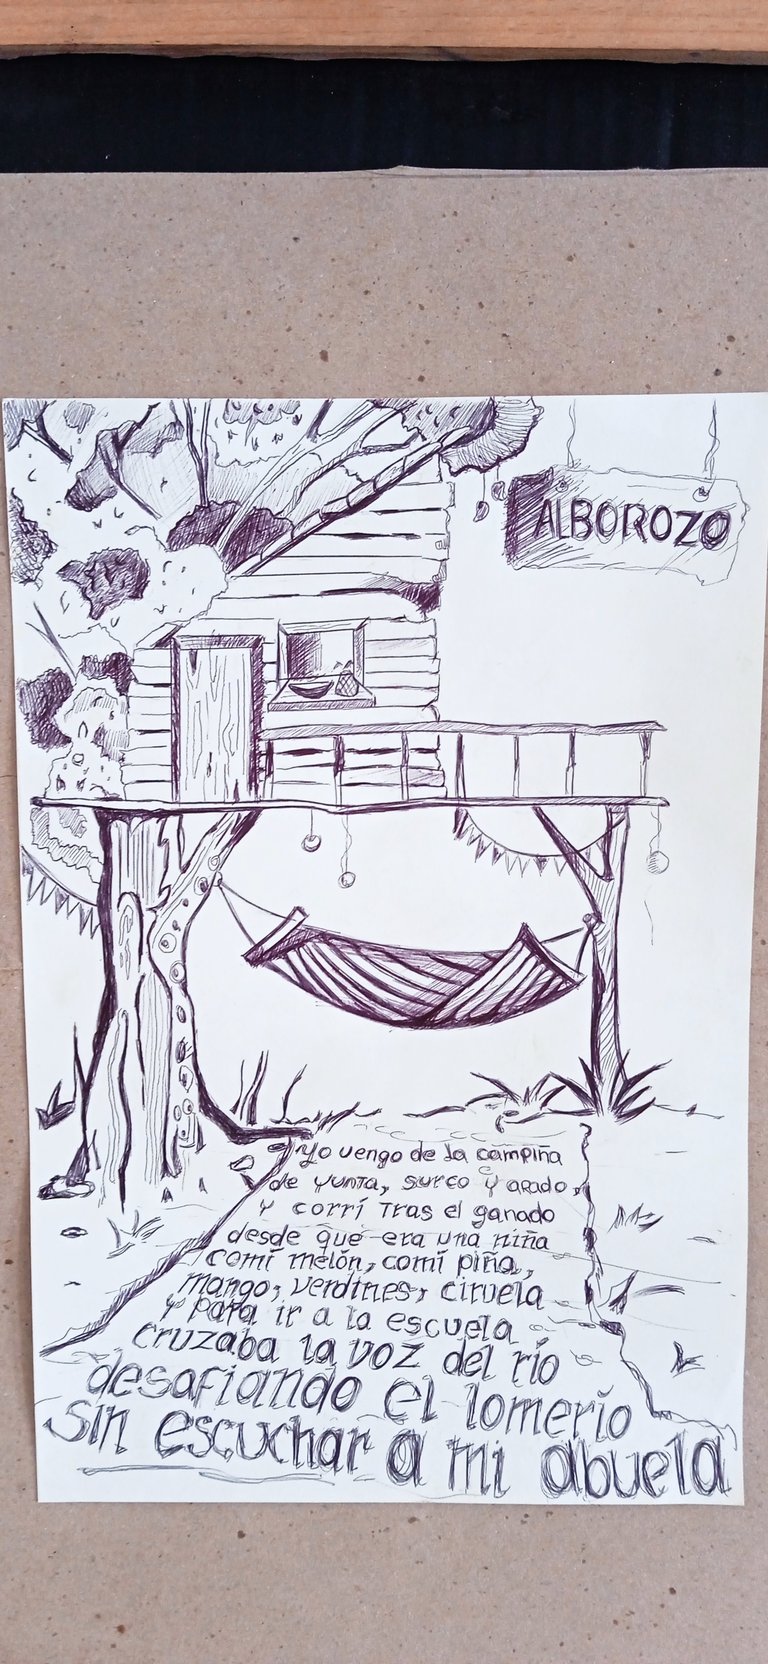 ALBOROZO
Yo vengo de la campiña
de yunta, surco y arado,
y corrí tras el ganado
desde que era una niña
comí melón, comí piña,
mango, verdines, ciruela
y para ir a la escuela
cruzaba la voz del río
desafiando el lomerío
sin escuchar a mi abuela